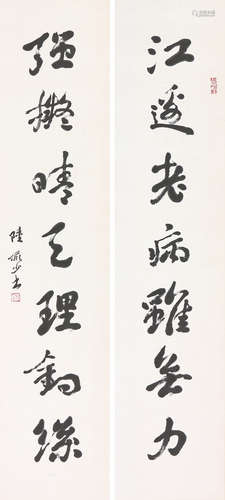 江邊老病雖無力
強擬晴天理釣絲
陸儼少書